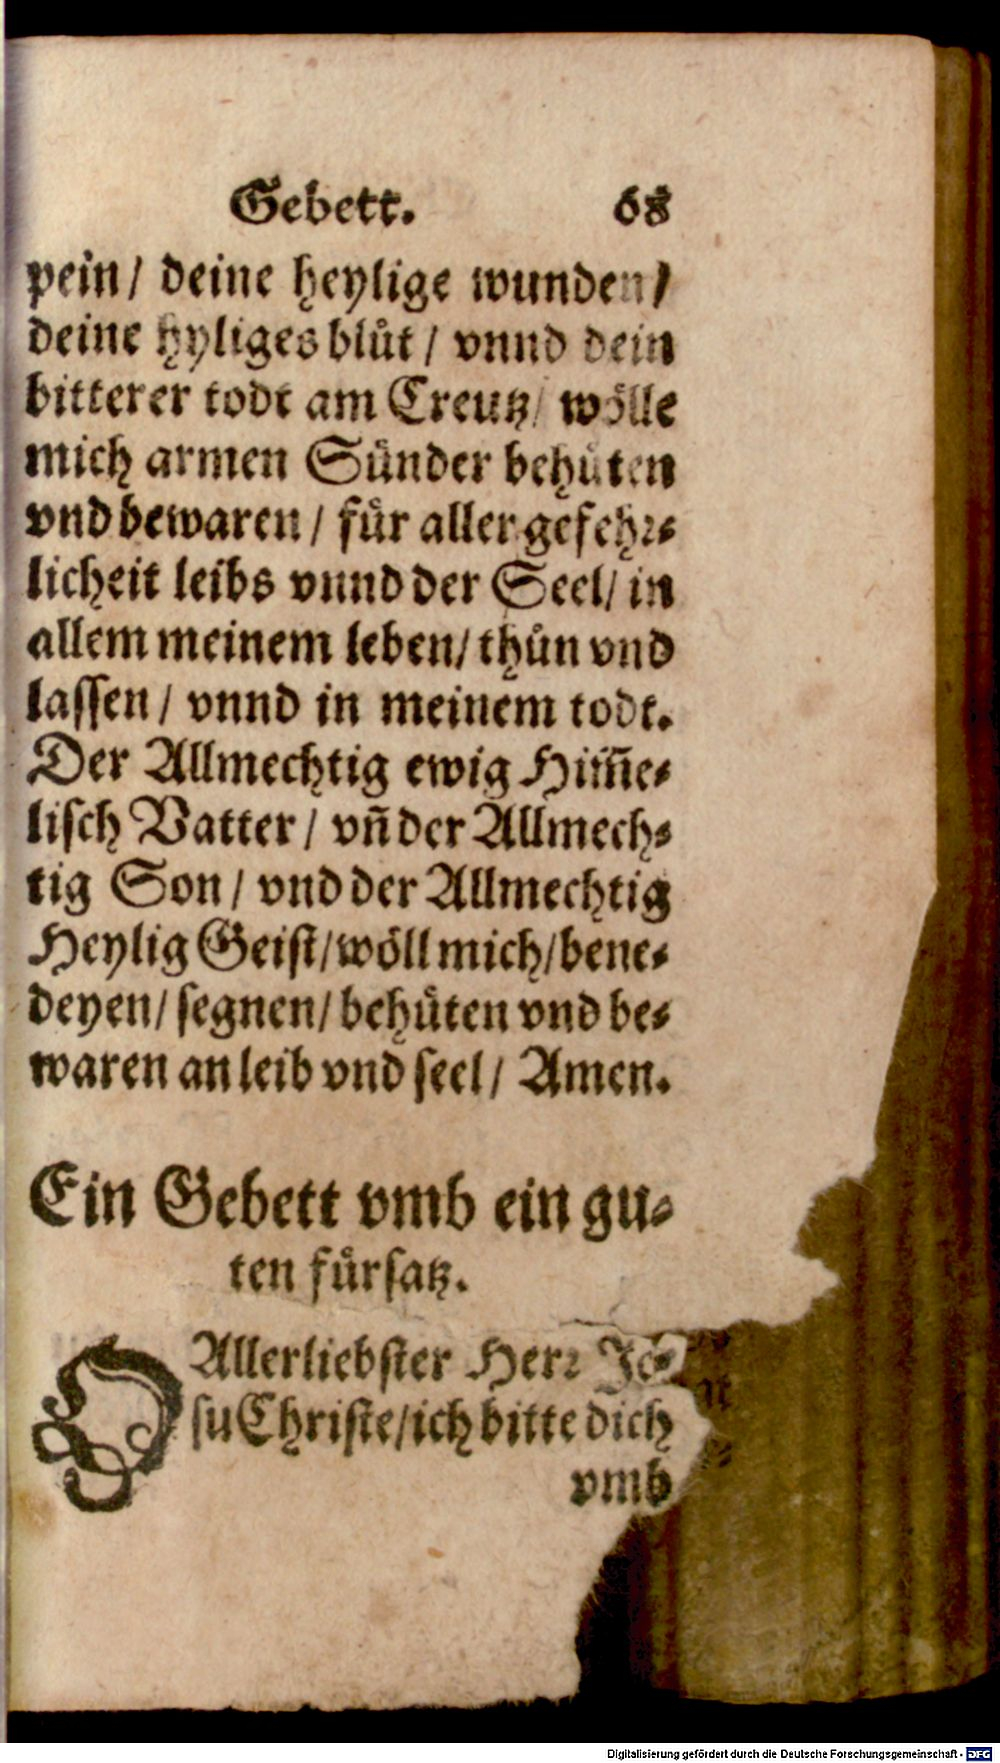 Gebett. 68
pein/ deine heylige wunden/
deine hyliges blůt/ vnnd dein
bitterer todt am Creutz/ wölle
mich armen Sünder behüten
vnd bewaren/ für aller gefehr-
licheit leibs vnnd der Seel/ in
allem meinem leben/ thůn vnd
lassen/ vnnd in meinem todt.
Der Allmechtig ewig Him̃e-
lisch Vatter/ vñ der Allmech-
tig Son/ vnd der Allmechtig
Heylig Geist/ wöll mich/ bene-
deyen/ segnen/ behüten vnd be-
waren an leib vnd seel/ Amen.
Ein Gebett vmb ein gu-
ten fürsatz.
O Allerliebster Herr Je-
su Christe/ ich bitte dich
vmb
Digitalisierung gefördert durch die Deutsche Forschungsgemeinschaft - DFG